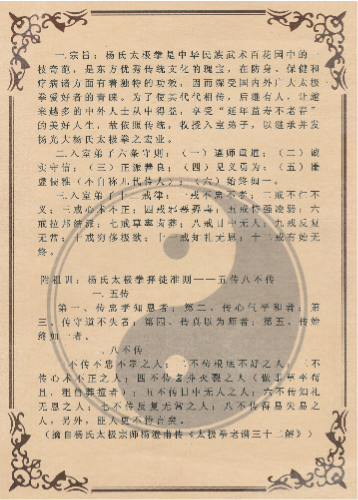 一.宗旨：杨氏太极拳是中华民族武术百花园中的一
枝奇葩，是东方优秀传统文化的瑰宝，在防身、保健和
疗病诸方面有着独特的功效，因而深受国内外广大太极
拳爱好者的青睐。为了使其代代相传，后继有人，让越
来越多的中外人士从中得益，享受“延年益寿不老春”
的美好人生，故依照传统，收授入室弟子，以继承并发
扬光大杨氏太极拳之宏业。
二.入室弟子六条守则：（一）尊师重道；（二）诚
实守信；（三）正派善良；（四）见义勇为；（五）谦
虚谨慎（不自称几代传人）；（六）始终如一。
三.入室弟子十二戒律：一戒不忠不孝；二戒不仁不
义；三戒心术不正；四戒；五戒恃强凌弱；六
戒拉帮结派；七戒草率；八戒目中无人；九戒反复
无常；十戒穷侈极欲；十一戒知礼无恩；十二戒有始无
终。
附祖训：杨氏太极拳择徒准则——五传八不传
一.五传
第一、传忠孝知恩者；第二、传心气平和者；第
三、传守道不失者；第四、传真以为师者；第五、传始
终如一者。
二.八不传
一不传不忠不孝之人；二不传根底不好之人；三不
传心术不正之人；四不传鲁莽灭裂之人
；五不传目中无人之人；六不传知礼
无恩之人；七不传反复无常之人；八不传得易失易之
人，另外，匪人更不传
（摘自杨氏太极宗师杨澄甫传《太极拳老谱三十二解》）